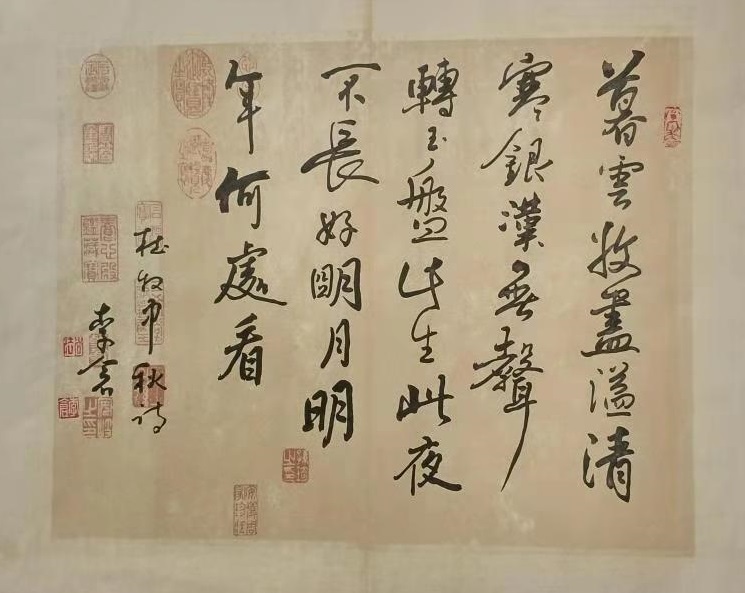 暮雲收盡溢清
寒銀漢無聲
轉玉盤此生此夜
不長好明月明
年何處看
杜牧中秋詩
李